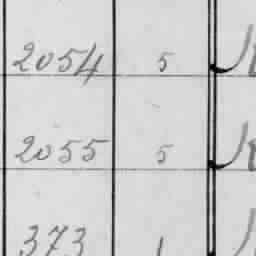 2054 5
2055 5
373 1